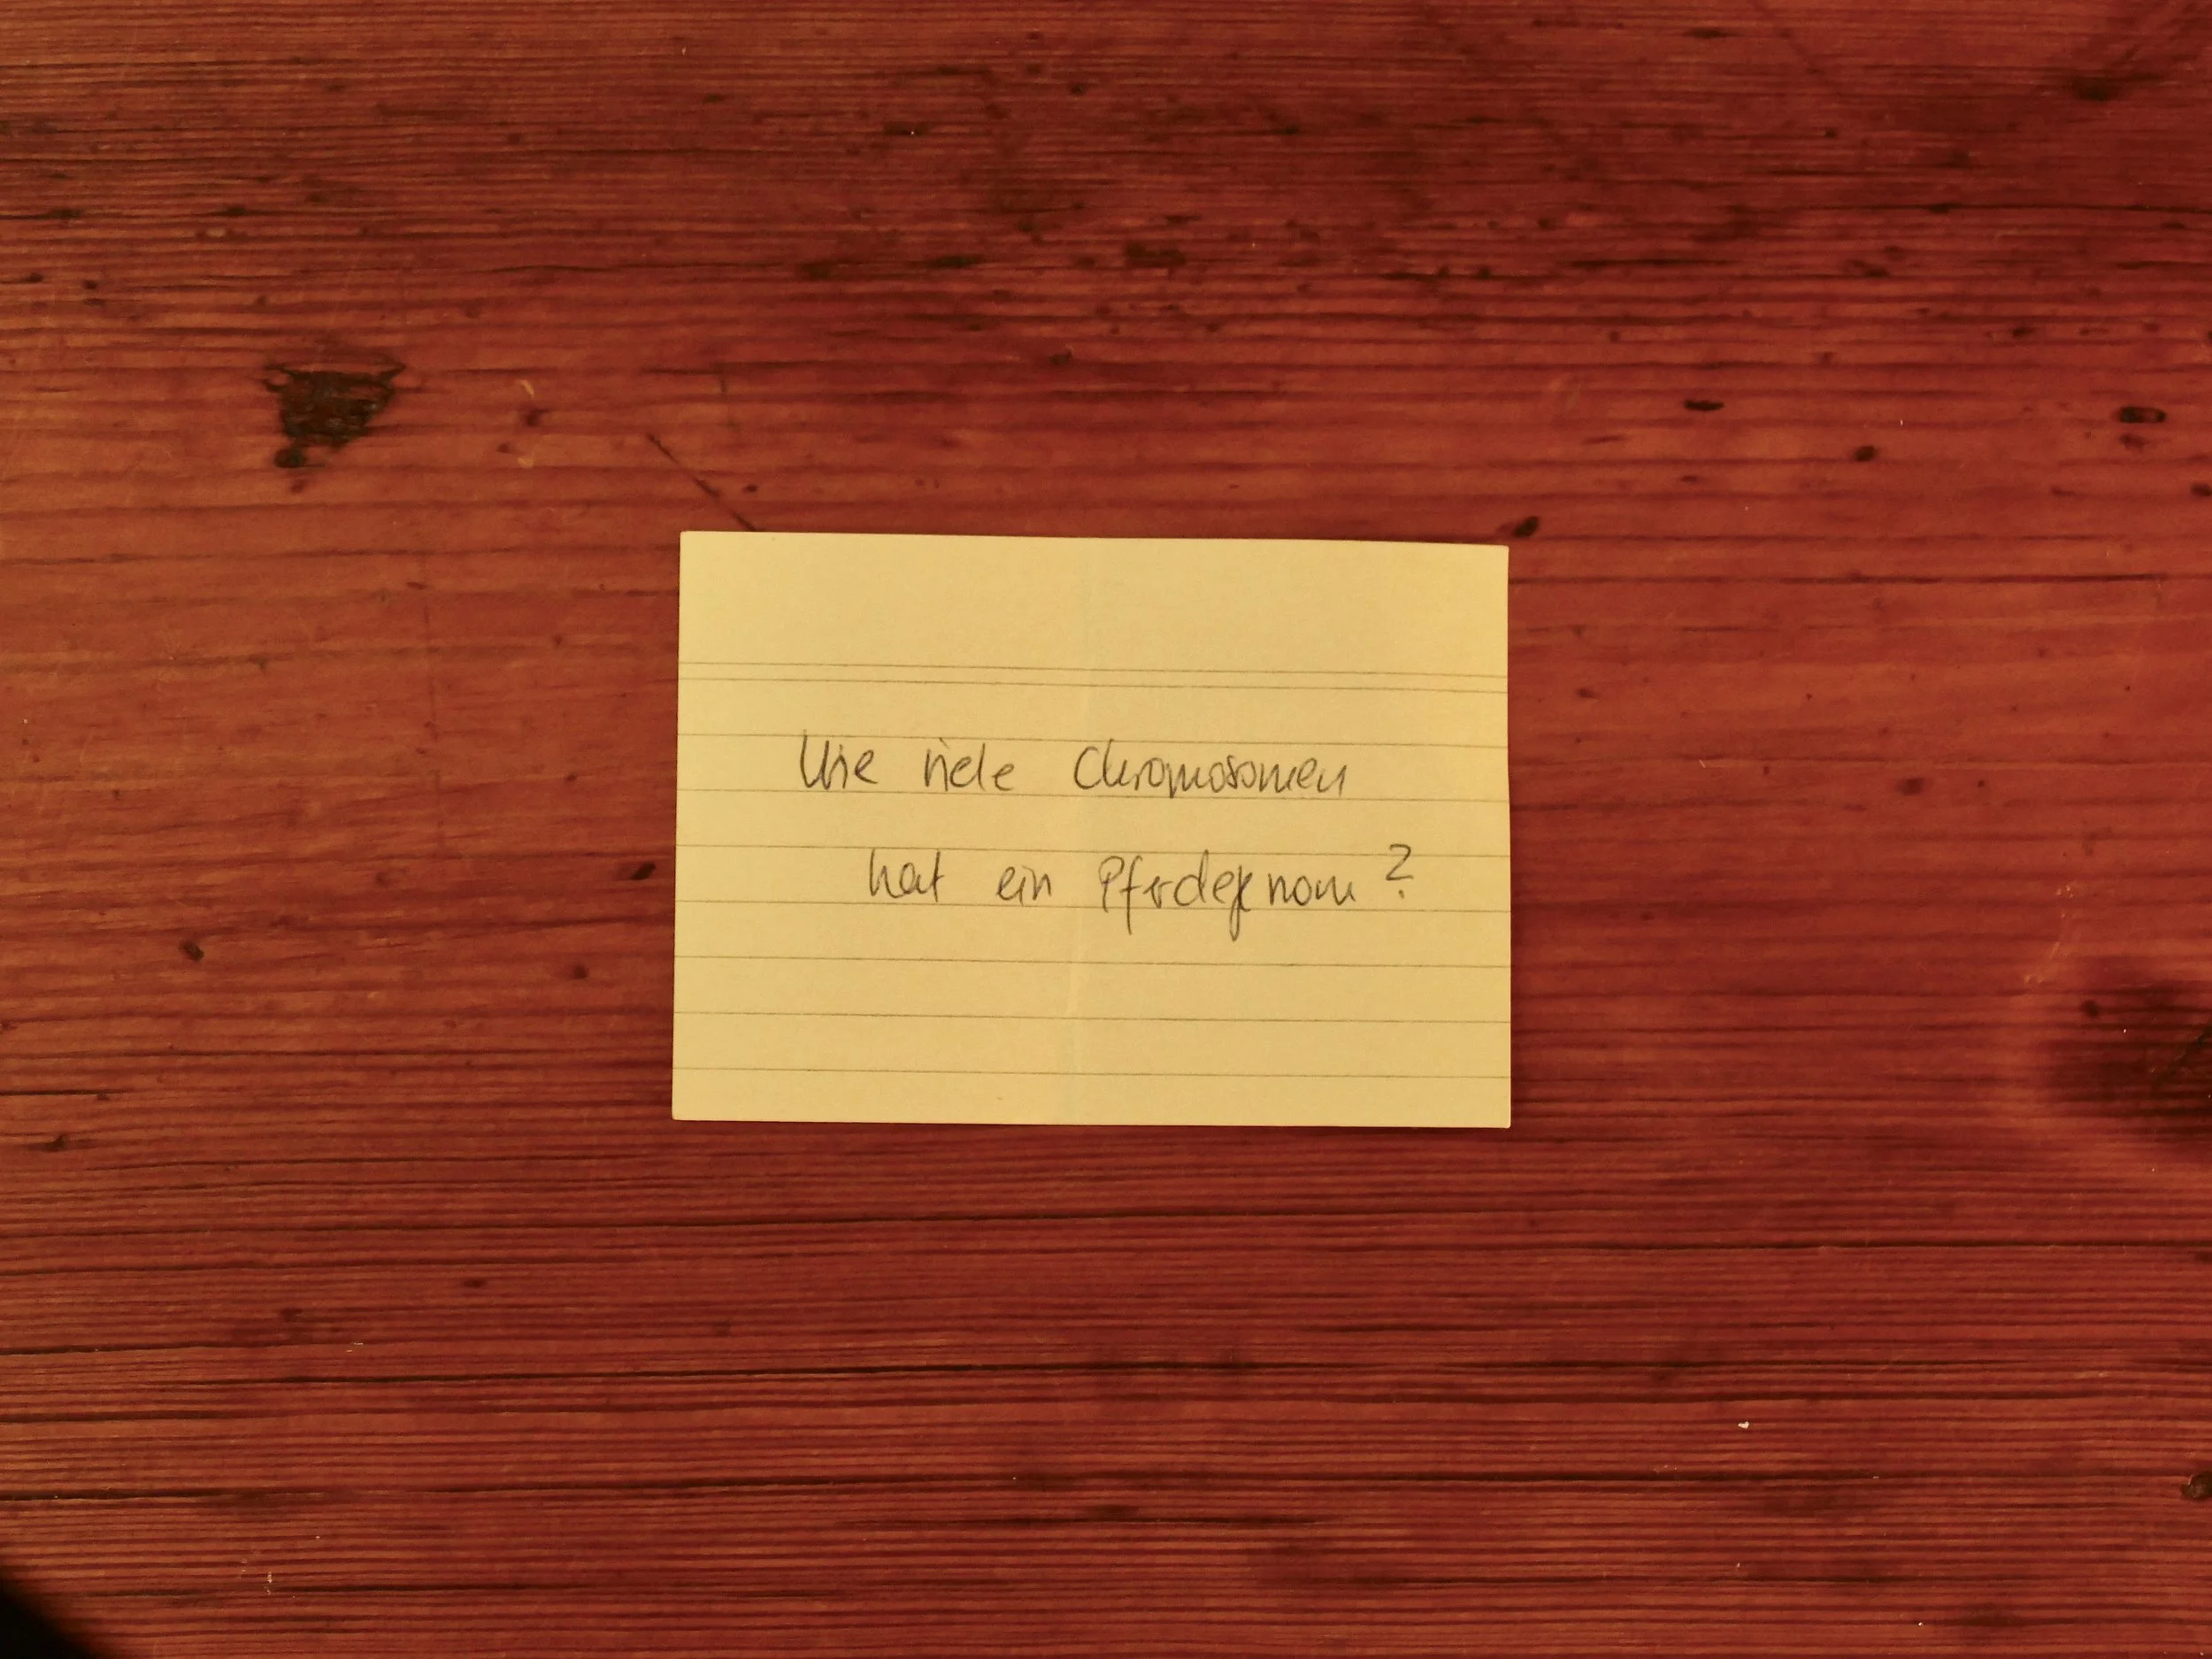 Wie viele Chromosomen
hat ein Pferdegenom?